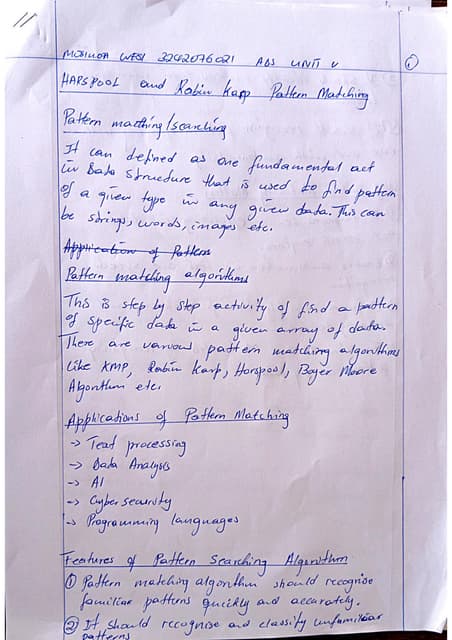 11
MOSINDA WESI 3242076021 ADS UNIT V
1
HARSPOOL and Robin Karp Pattern Matching
Pattern matthing/searching
It can defined as one fundamental act
in Data Structure that is used to find pattern
of a given type in any given data. This can
be strings, words, images etc.
Application of Pattern
Pattern matching algorithms
This is step by step activity of find a pattern
of specific data in a given array of data.
There are various pattern matching algorithms
like KMP, Robin Karp, Horspool, Boyer Moore
Algorithm etc.
Applications of Pattern Matching
-> Text processing
-> Data Analysis
-> AI
-> Cyber security
-> Programming languages
Features of Pattern Searching Algorithm
1 Pattern matching algorithm should recognise
familiar patterns quickly and accurately.
2 It should recognise and classify unfamiliar
patterns